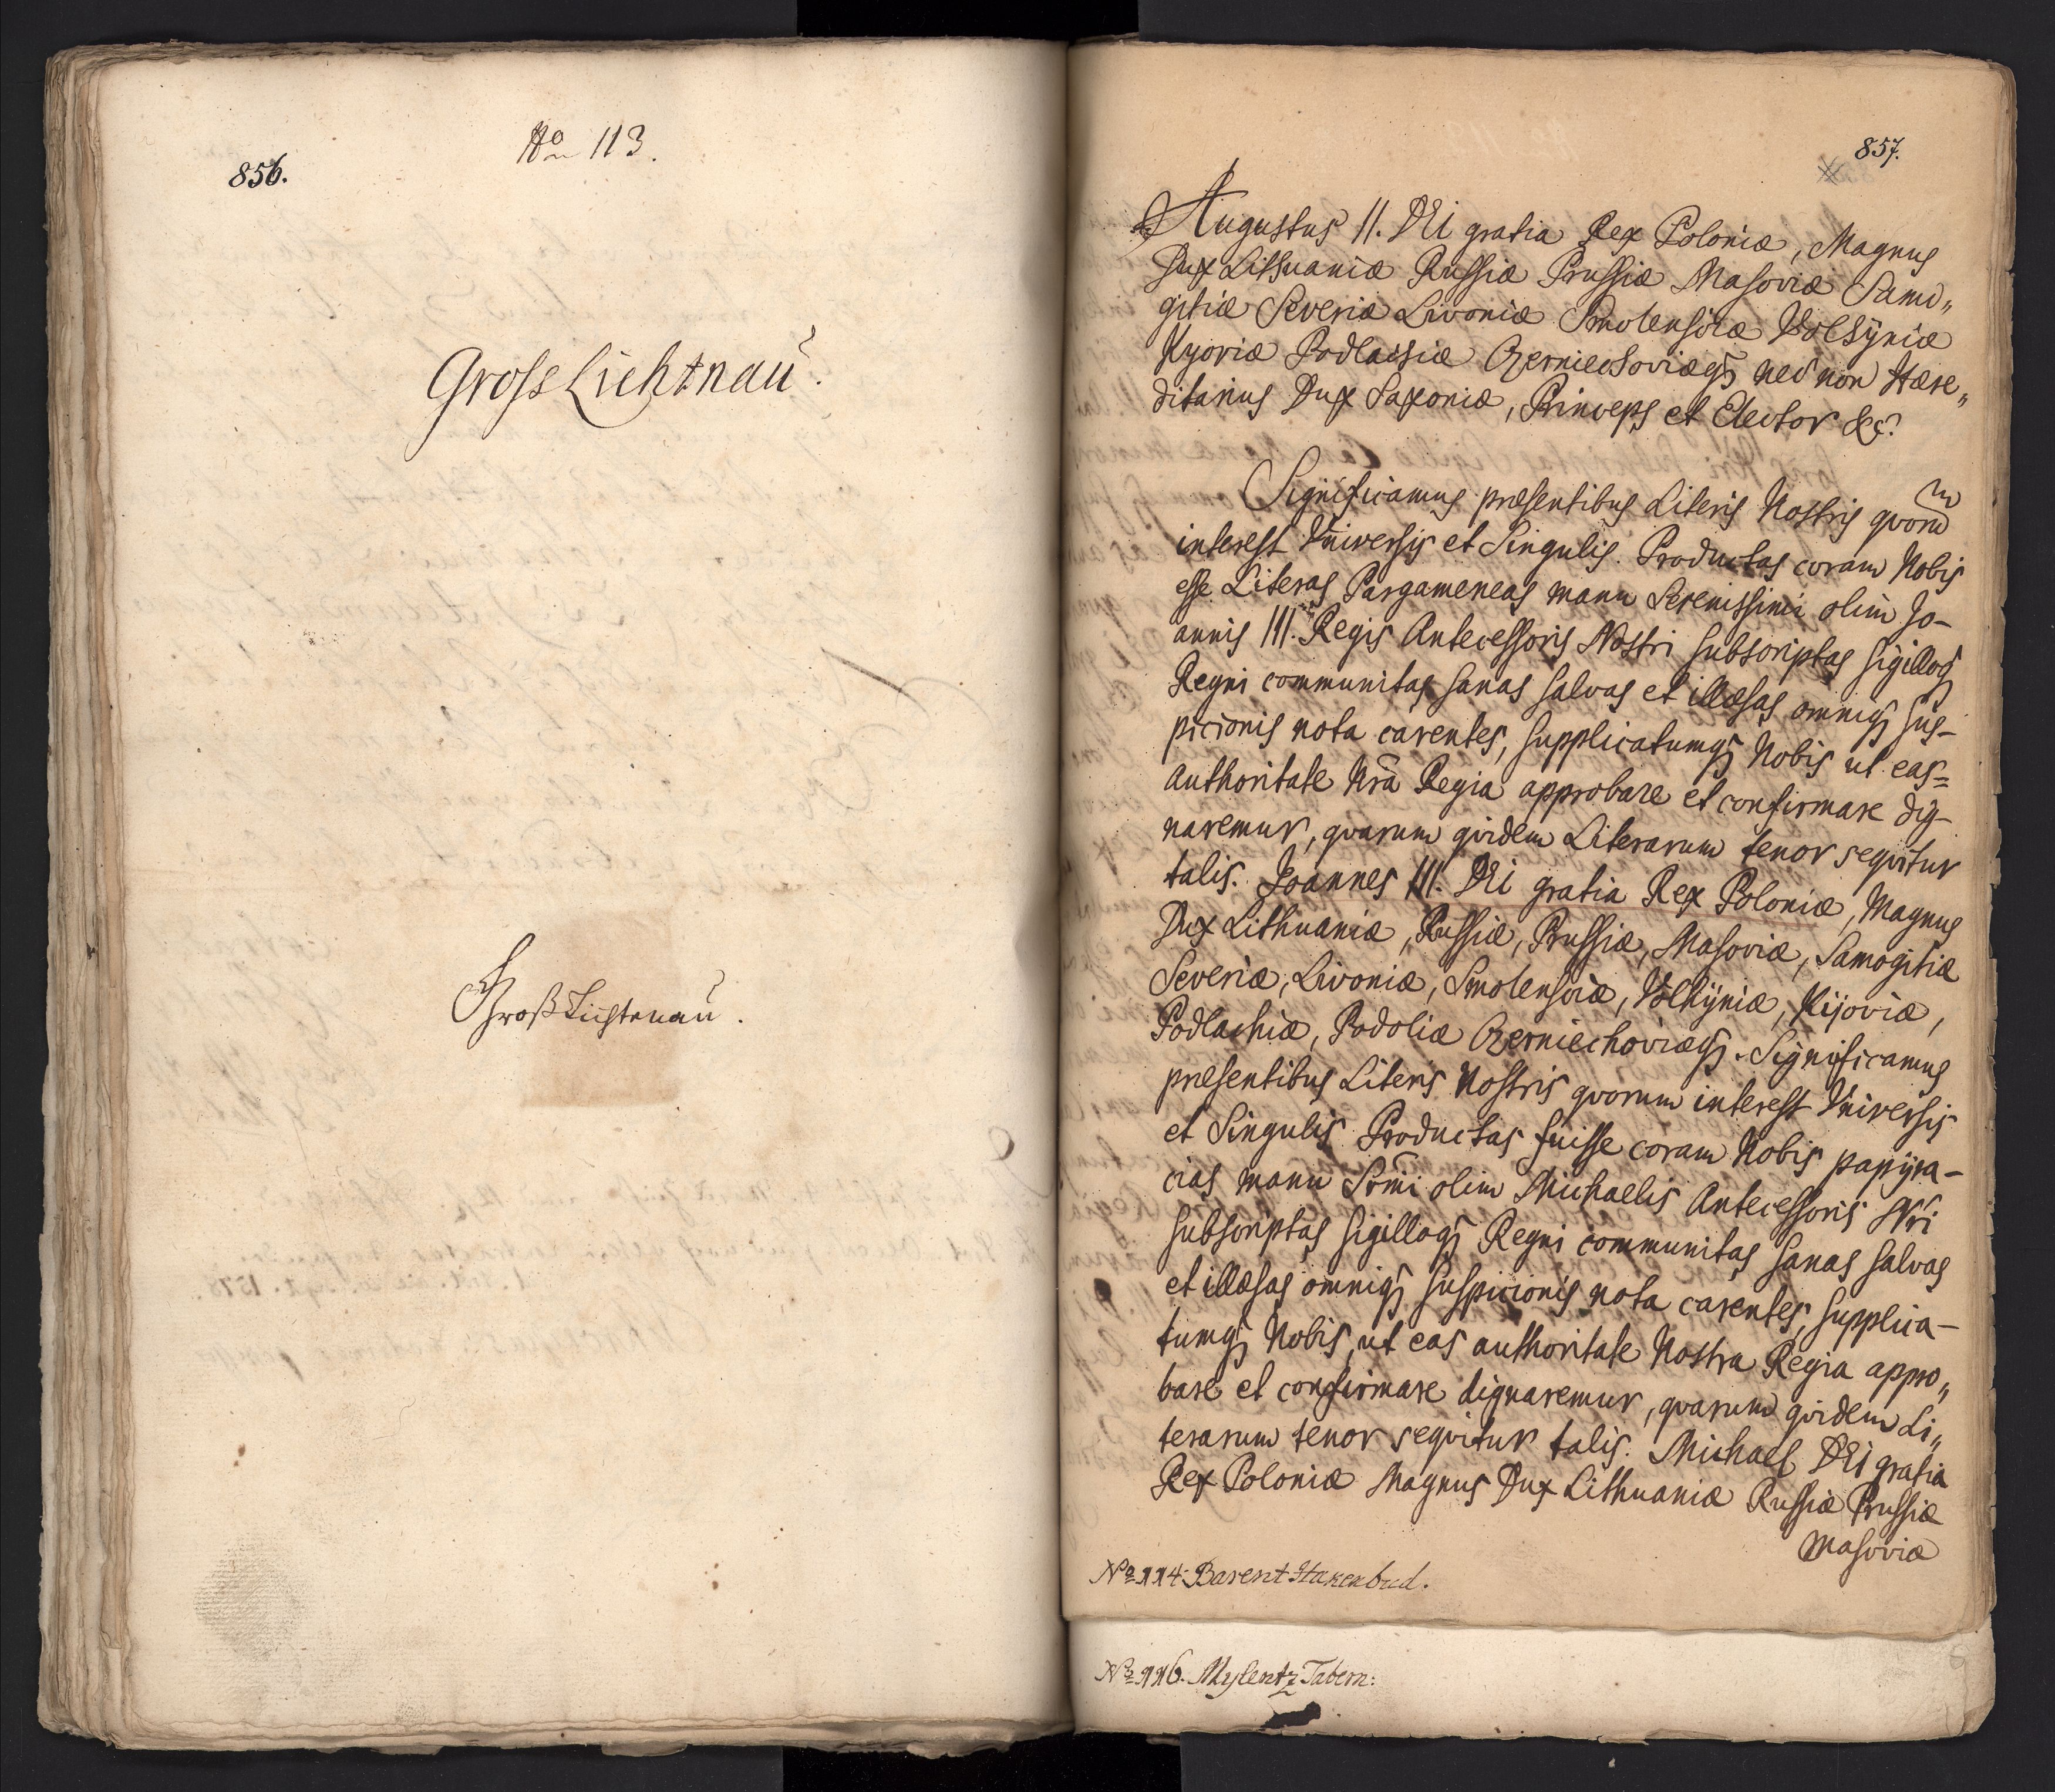 No 113.
856.
Gross Lichtnau.
Groß Lichtenau.
857.
Augustus II. DEi gratia Rex Poloniæ, Magnus
Dux Lithuaniæ Russiæ Prussiæ Masoviæ Samo„
gitiæ Severiæ Livoniæ Smolensciæ Volhÿniæ
Kyoviæ Podlachiæ Czerniechoviæq3 nec non Hære„
ditarius Dux Saxoniæ, Princeps et Elector &c.
Significamus præsentibus Literis Nostris qvorũ
interest Universis et Singulis. Productas coram Nobis
esse Literas Pargameneas manu Serenissimi olim Jo-
annis III. Regis Antecessoris Nostri subscriptas sigilloq3
Regni communitas sanas salvas et illæsas omniq3 sus-
picionis nota carentes, supplicatumq3 Nobis ut eas=
authoritate Nrã Regia approbare et confirmare dig-
naremur, qvarum qvidem Literarum tenor seqvitur
talis. Joannes III. DEi gratia Rex Poloniæ, Magnus
Dux Lithuaniæ, Russiæ, Prussiæ, Masoviæ, Samogitiæ
Severiæ, Livoniæ, Smolensciæ, Volhÿniæ, Kijoviæ,
Podlachiæ, Podoliæ Czerniechoviæq3. Significamus
præsentibus Literis Nostris qvorum interest Universis
et Singulis Productas fuisse coram Nobis papÿra-
cias manu Sẽmi olim Michaelis Antecessoris Nri
subscriptas sigilloq3 Regni communitas sanas salvas
et illæsas omniq3 suspicionis nota carentes, supplica-
tumq3 Nobis, ut eas authoritate Nostra Regia appro„
bare et confirmare dignaremur, qvarum qvidem Li„
terarum tenor seqvitur talis. Michael DEi gratia
Rex Poloniæ Magnus Dux Lithuaniæ Russiæ Prussiæ
Masoviæ
No 114. Barent Hakenbud.
No 116. Mylentz Tabern: